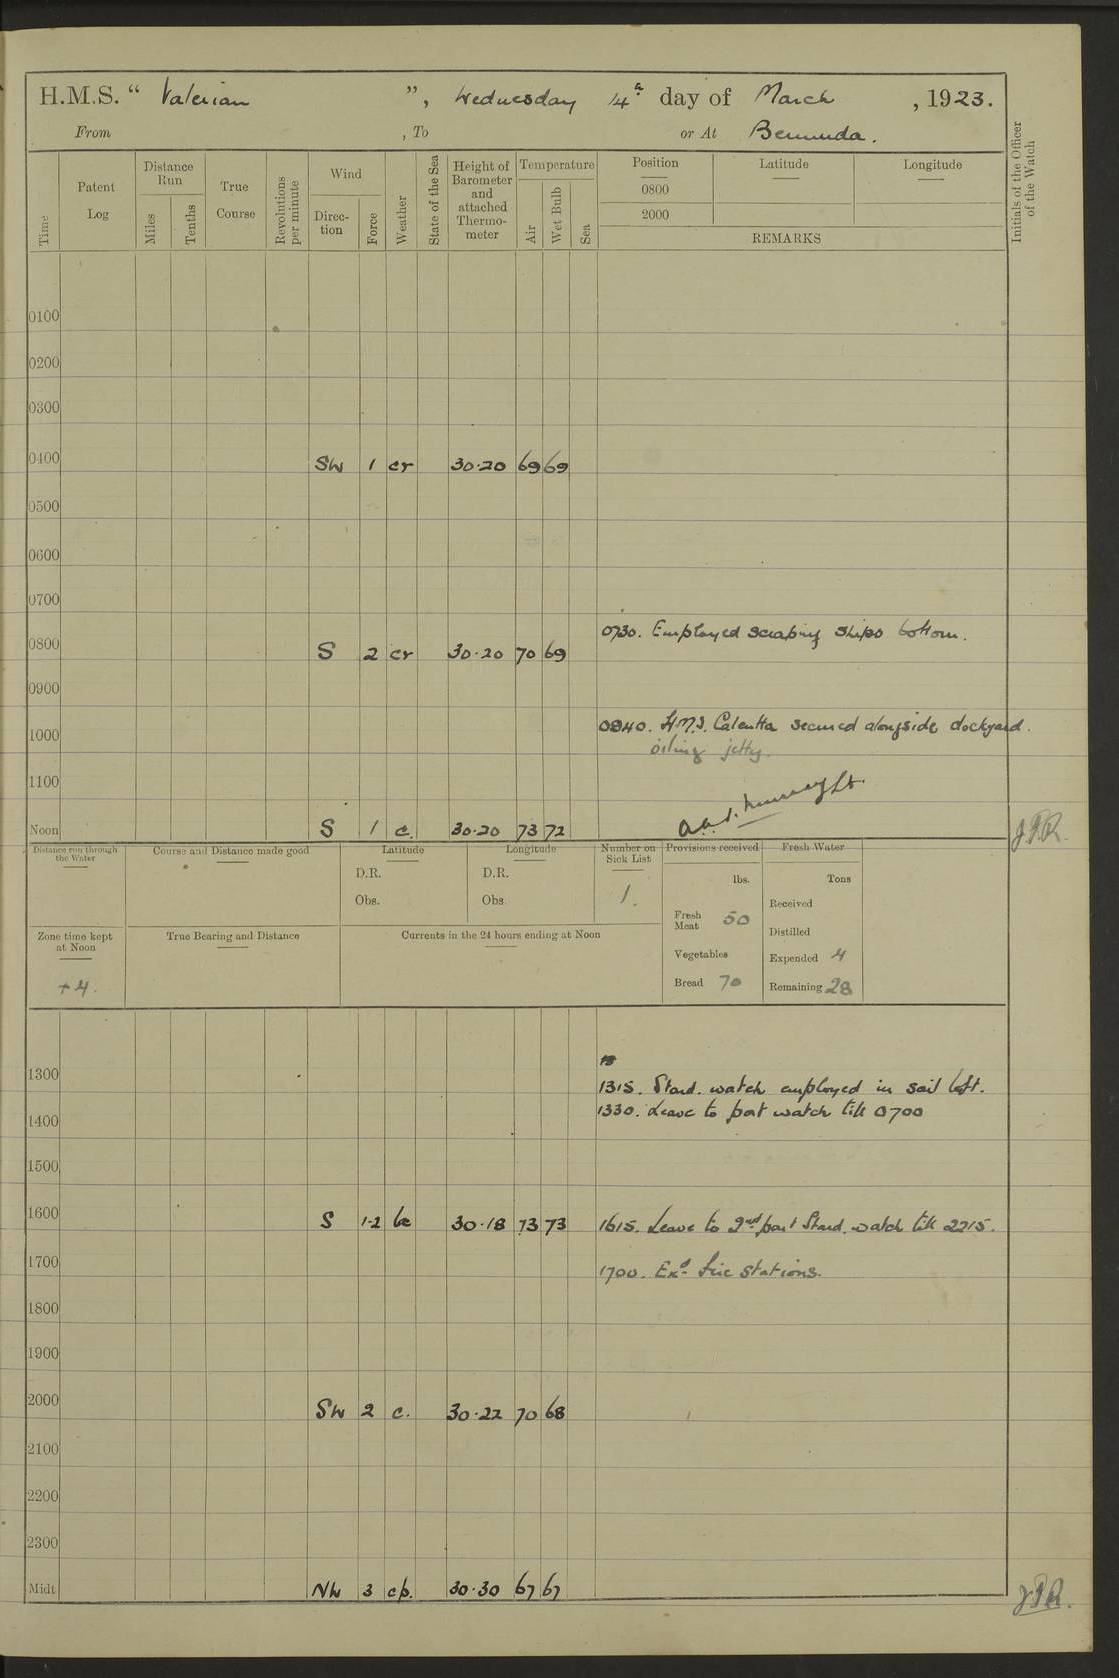 H.M.S. " Valerian ", Wednesday 14th day of March, 1923.
From , To or At Bermuda.
Time
Patent Log
Distance Run
Miles
Tenths
True Course
Revolutions per minute
Wind
Direc-tion
Force
Weather
State of the Sea
Height of Barometer and attached Thermo-meter
Temperature
Air
Wet Bulb
Sea
Position
Latitude
Longitude
0800
2000
REMARKS
Initials of the Officer of the Watch
0100
0200
0300
0400 SW 1 cr 30·20 69 69
0500
0600
0700
0730. Employed scraping ships bottom.
0800 S 2 cr 30·20 70 69
0900
0840. H.M.S. Calcutta secured alongside dockyard.
1000
oiling jetty.
1100
Noon S 1 c. 30·20 73 72
Distance run through the Water
Course and Distance made good
Latitude
D.R.
Obs.
Longitude
D.R.
Obs.
Number on Sick List
1.
Provisions received
lbs.
Fresh Meat 50
Vegetables
Bread 70
Fresh Water
Tons
Received
Distilled
Expended 4
Remaining 28
Zone time kept at Noon
+4.
True Bearing and Distance
Currents in the 24 hours ending at Noon
1300
1315. Stard. watch employed in sail loft.
1330. Leave to port watch till 0700
1400
1500
1600 S 1-2 bc 30·18 73 73 1615. Leave to 2nd part Stard. watch till 2215.
1700 1700. Exd. fire stations.
1800
1900
2000 SW 2 c. 30·22 70 68
2100
2200
2300
Midt NW 3 cp. 30·30 67 67